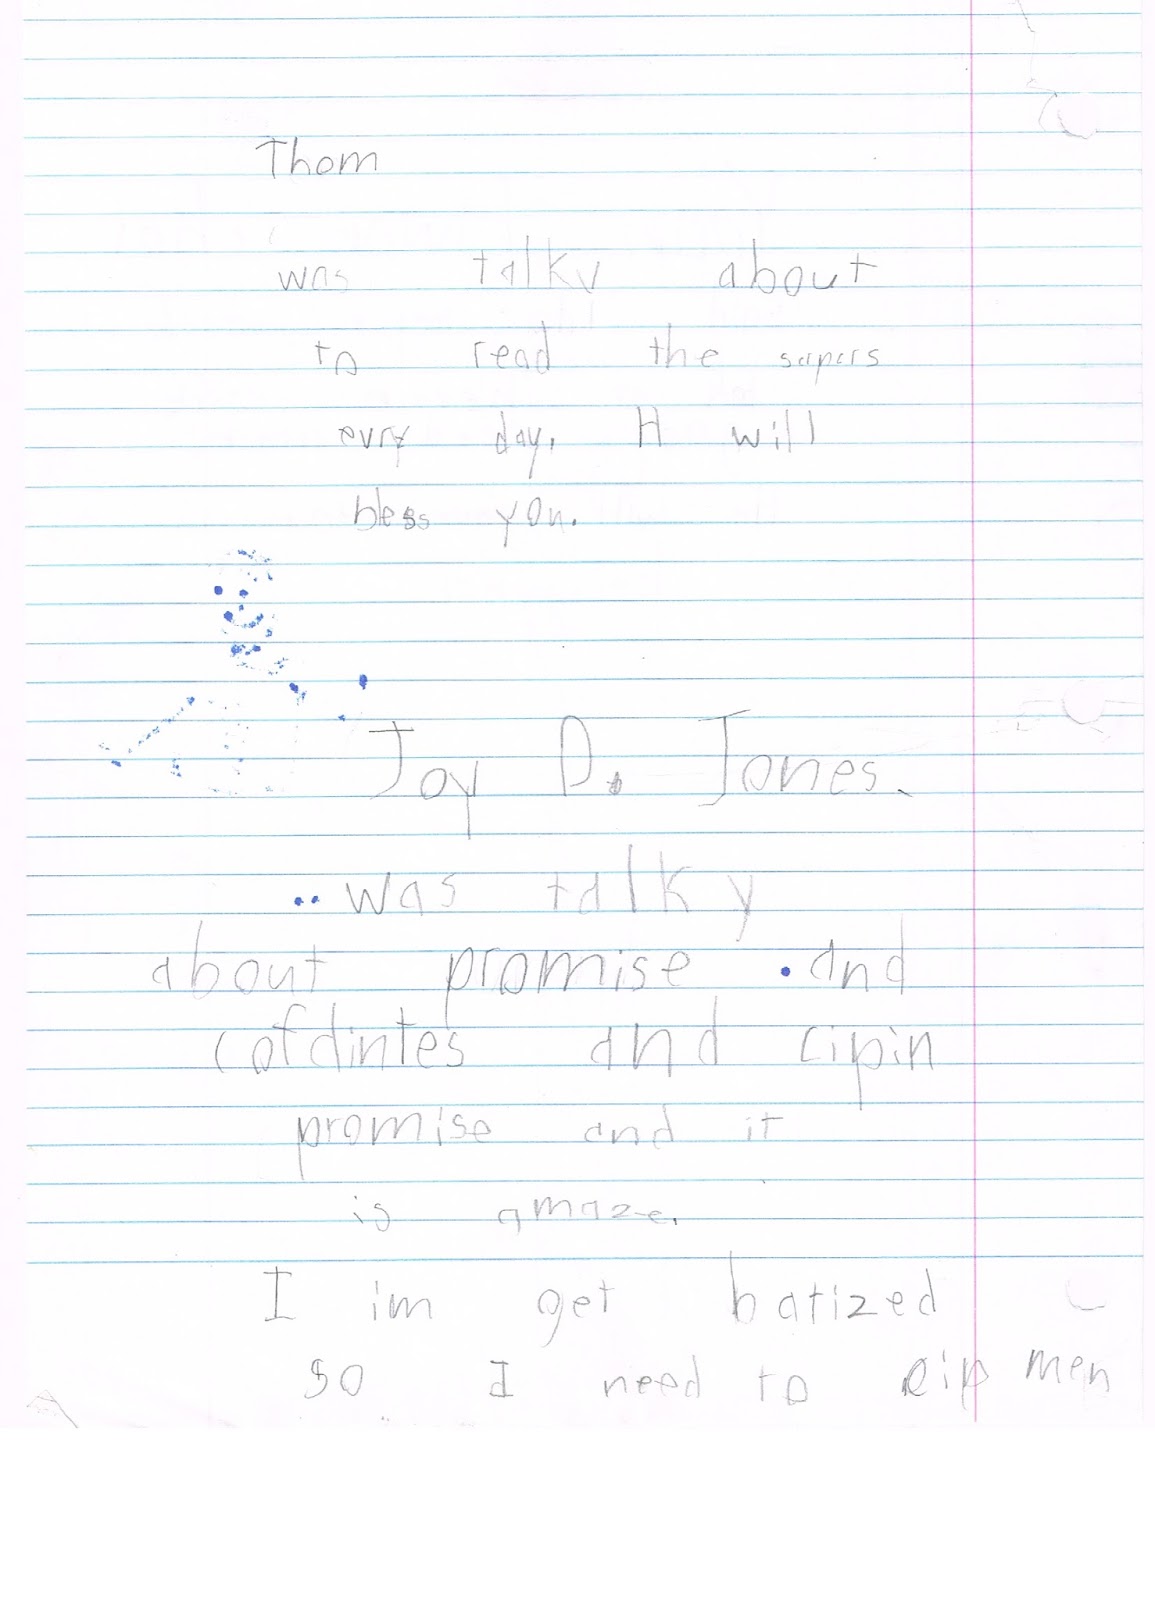 Thom
was talky about
to read the scripers
evry day. It will
bless you.
Joy D. Jones.
was talky
about promise and
cofdintes and cipin
promise and it
is amaze.
I im get batized
so I need to cip men